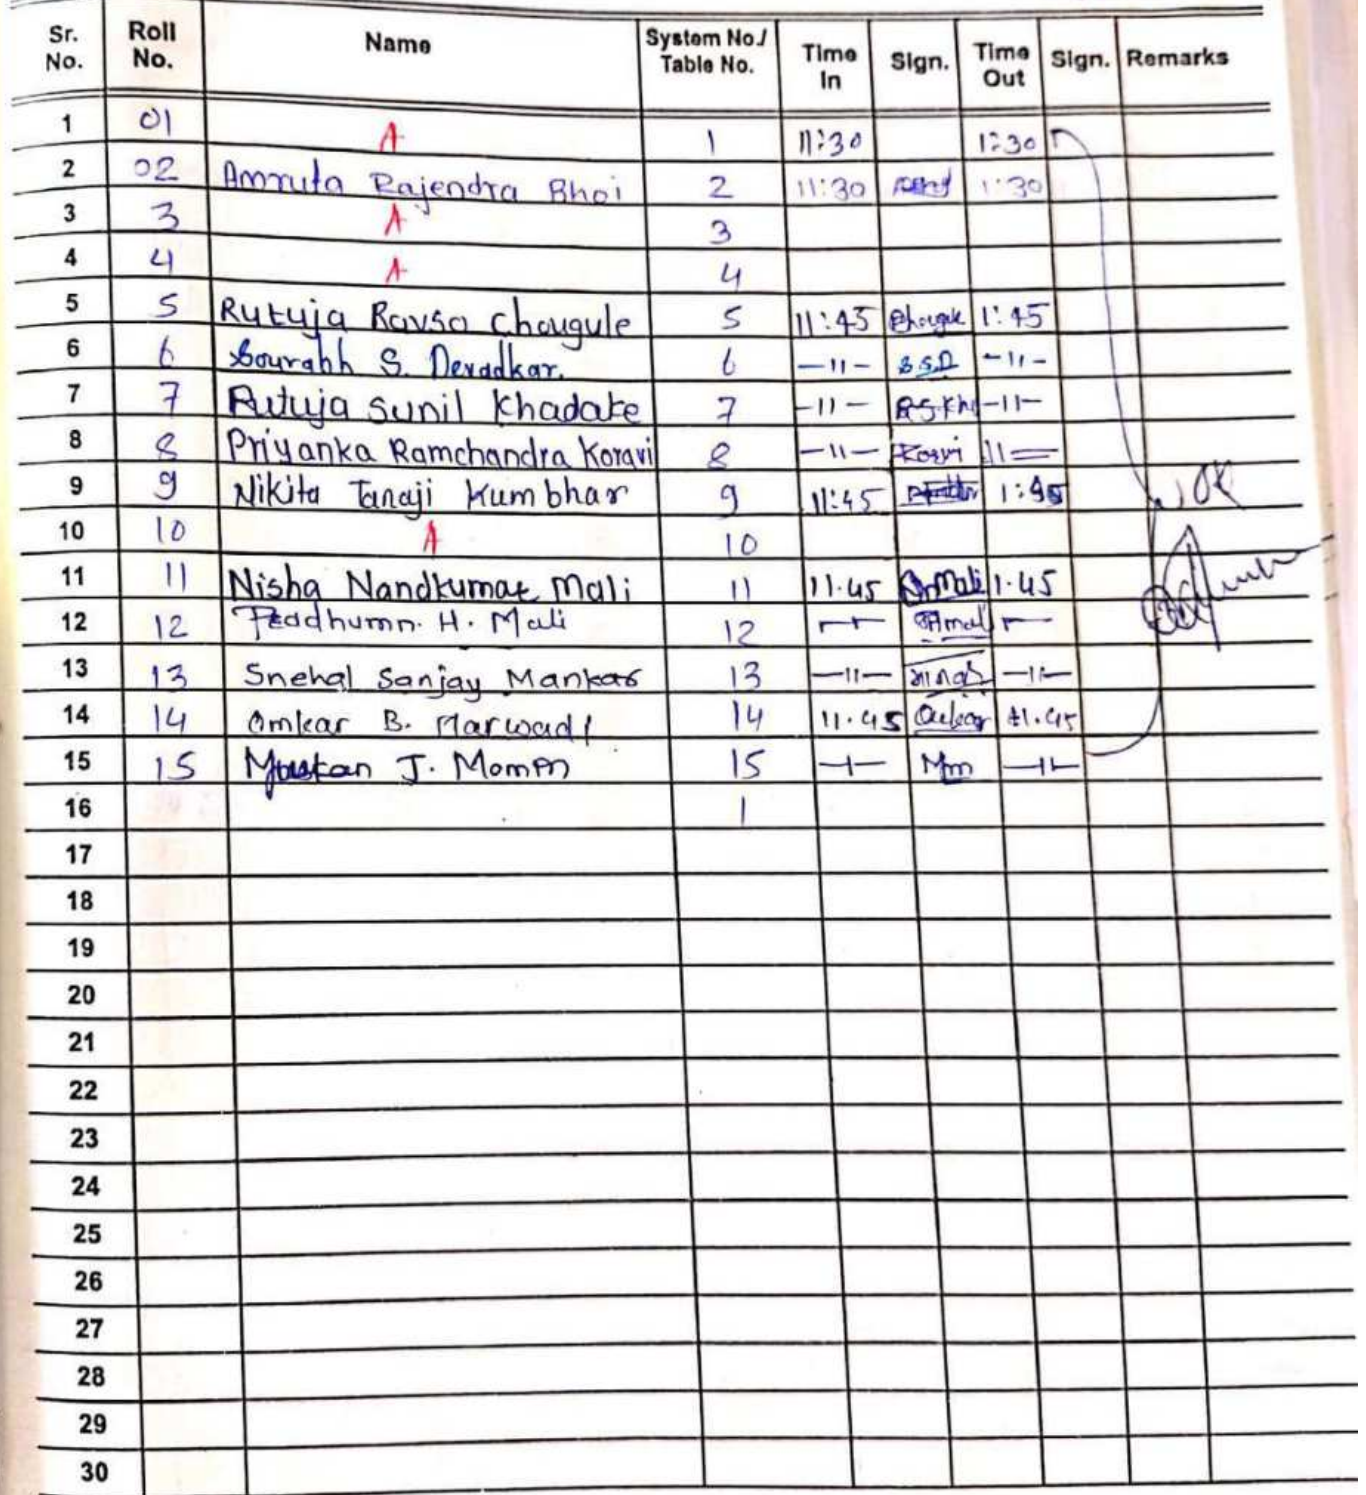 Sr. No. Roll No. Name System No./ Table No. Time In Sign. Time Out Sign. Remarks
1 01 A 1 11:30 1:30
2 02 Amruta Rajendra Bhoi 2 11:30 1:30
3 3 A 3
4 4 A 4
5 5 Rutuja Ravso Chougule 5 11:45 Chougule 1:45
6 6 Sourabh S. Devadkar. 6 —11— S.S.D —11—
7 7 Rutuja Sunil Khadake 7 —11— R.S.Kh —11—
8 8 Priyanka Ramchandra Koravi 8 —11— Koravi 11=
9 9 Nikita Tanaji Kumbhar 9 11:45 1:45
OK
10 10 A 10
11 11 Nisha Nandkumar Mali 11 11.45 Mali 1.45
12 12 Pradhumn. H. Mali 12
13 13 Snehal Sanjay Mankar 13 —11— —11—
14 14 Omkar B. Marwadi 14 11.45 Omkar 1.45
15 15 Muskan J. Momin 15 Mm —11—
16 1
17
18
19
20
21
22
23
24
25
26
27
28
29
30